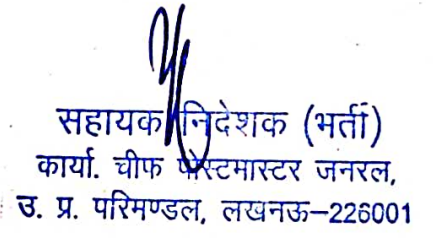 सहायक निदेशक (भर्ती)
कार्या. चीफ पोस्टमास्टर जनरल,
उ. प्र. परिमण्डल, लखनऊ–226001